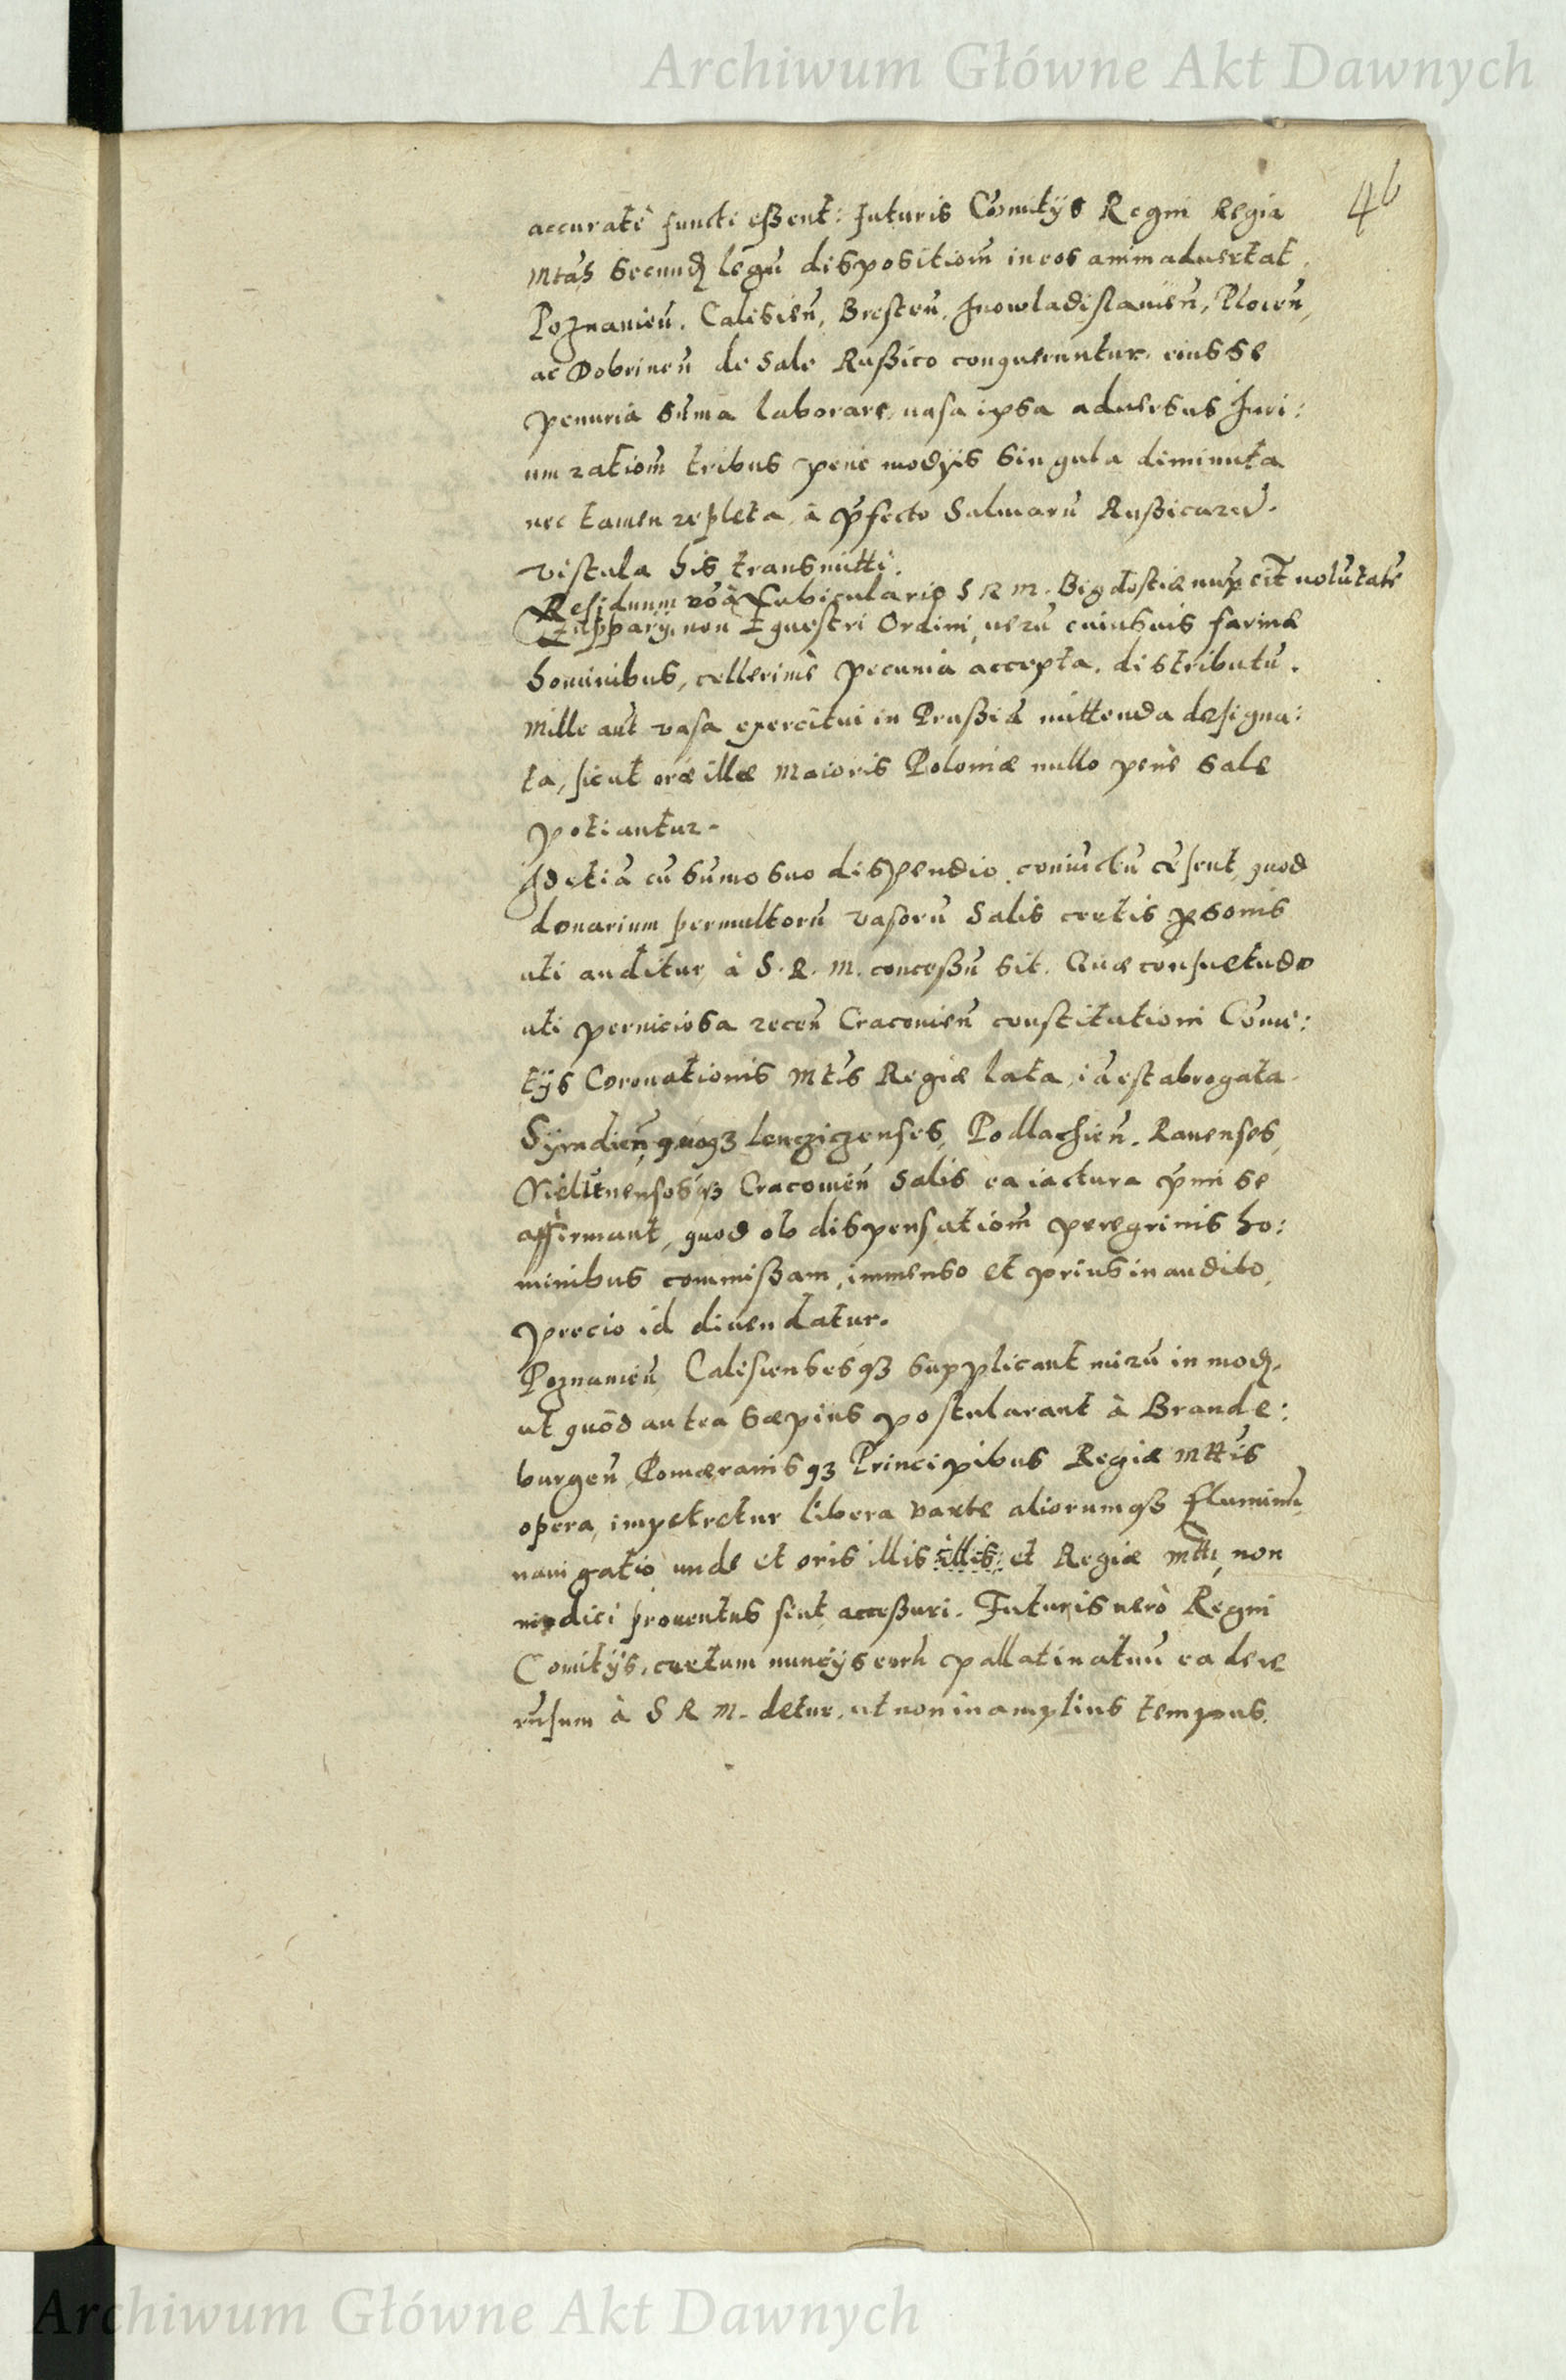 Archiwum Główne Akt Dawnych
46
accuratè functi eßent: futuris Comitÿs Regni Regia
Mtas secund legū dispositiom̄ in eos animaduertat.
Poznanien̄. Calisien̄, Bresten̄. Jnowladislauien̄, Plocen̄,
ac Dobrinen̄ de Sale Rußico conqueruntur. eius se
penuria sūma laborare, uasa ipsa aduersus Juri:
um ratiom̄ tribus penè modÿis singula diminuta
nec tamen repleta, à p̄fecto Salinarū Rußicarū.
Vistula his transmitti.
Residuum vō à Cubiculario S R M. Bigdostiæ nup cit̄ uolūtatē
Zupparÿ, non Equestri Ordini, uerū cuiusuis farinæ
hominibus, cellerimè pecunia accepta. distributū.
Mille aut̄ vasa exercitui in Prußiā mittenda designa:
ta, sicut oræ illæ Maioris Poloniæ nullo penè sale
potiantur.
Jd etiā cū sūmo suo dispendio coniūctū cēsent, quod
donarium permultorū vasorū Salis certis psonis
uti auditur, à S. R. M. conceßū sit. Quæ consuetudo
uti perniciosa recen̄ Cracouien̄ constitutioni Comi:
tÿs Coronationis Mtis Regiæ lata, iā est abrogata.
Syradien̄, quoqȝ Lencziczenses, Podlachien̄. Rauenses,
Wielunensesqȝ Cracouien̄ Salis ea iactura p̄mi se
affirmant, quod ob dispensatiom̄ peregrinis ho:
minibus commißam, immenso et prius inaudito,
precio id diuendatur.
Poznanien̄, Calisiensesqȝ supplicant mirū in mod.
ut quōd antea sæpius postularant à Brande:
burgen̄, Pomæranisqȝ Principibus Regiæ Mttis
opera, impetretur libera Varte aliorumqȝ fluminū,
nauigatio, unde et oris illis illis: et Regiæ Mtti, non
modici prouentus sint acceßuri. Futuris uerò Regni
Comitÿs, certum nuncÿs eorū pallatinatuū ea de re
rursum à S R M. detur, ut non in amplius tempus.
Archiwum Główne Akt Dawnych